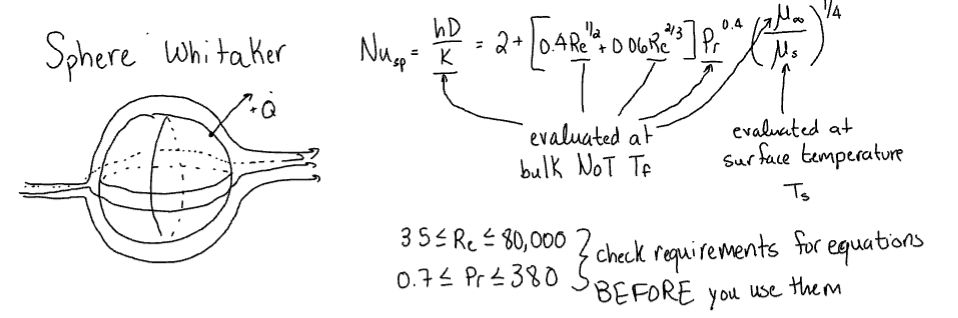 Sphere Whitaker
Nu_sp = hD/K = 2 + [0.4Re^1/2 + 0.06Re^2/3] Pr^0.4 (μ∞/μs)^1/4
+Q̇
evaluated at
bulk NOT Tf
evaluated at
surface temperature
Ts
3.5 ≤ Re ≤ 80,000
0.7 ≤ Pr ≤ 380
} check requirements for equations
BEFORE you use them